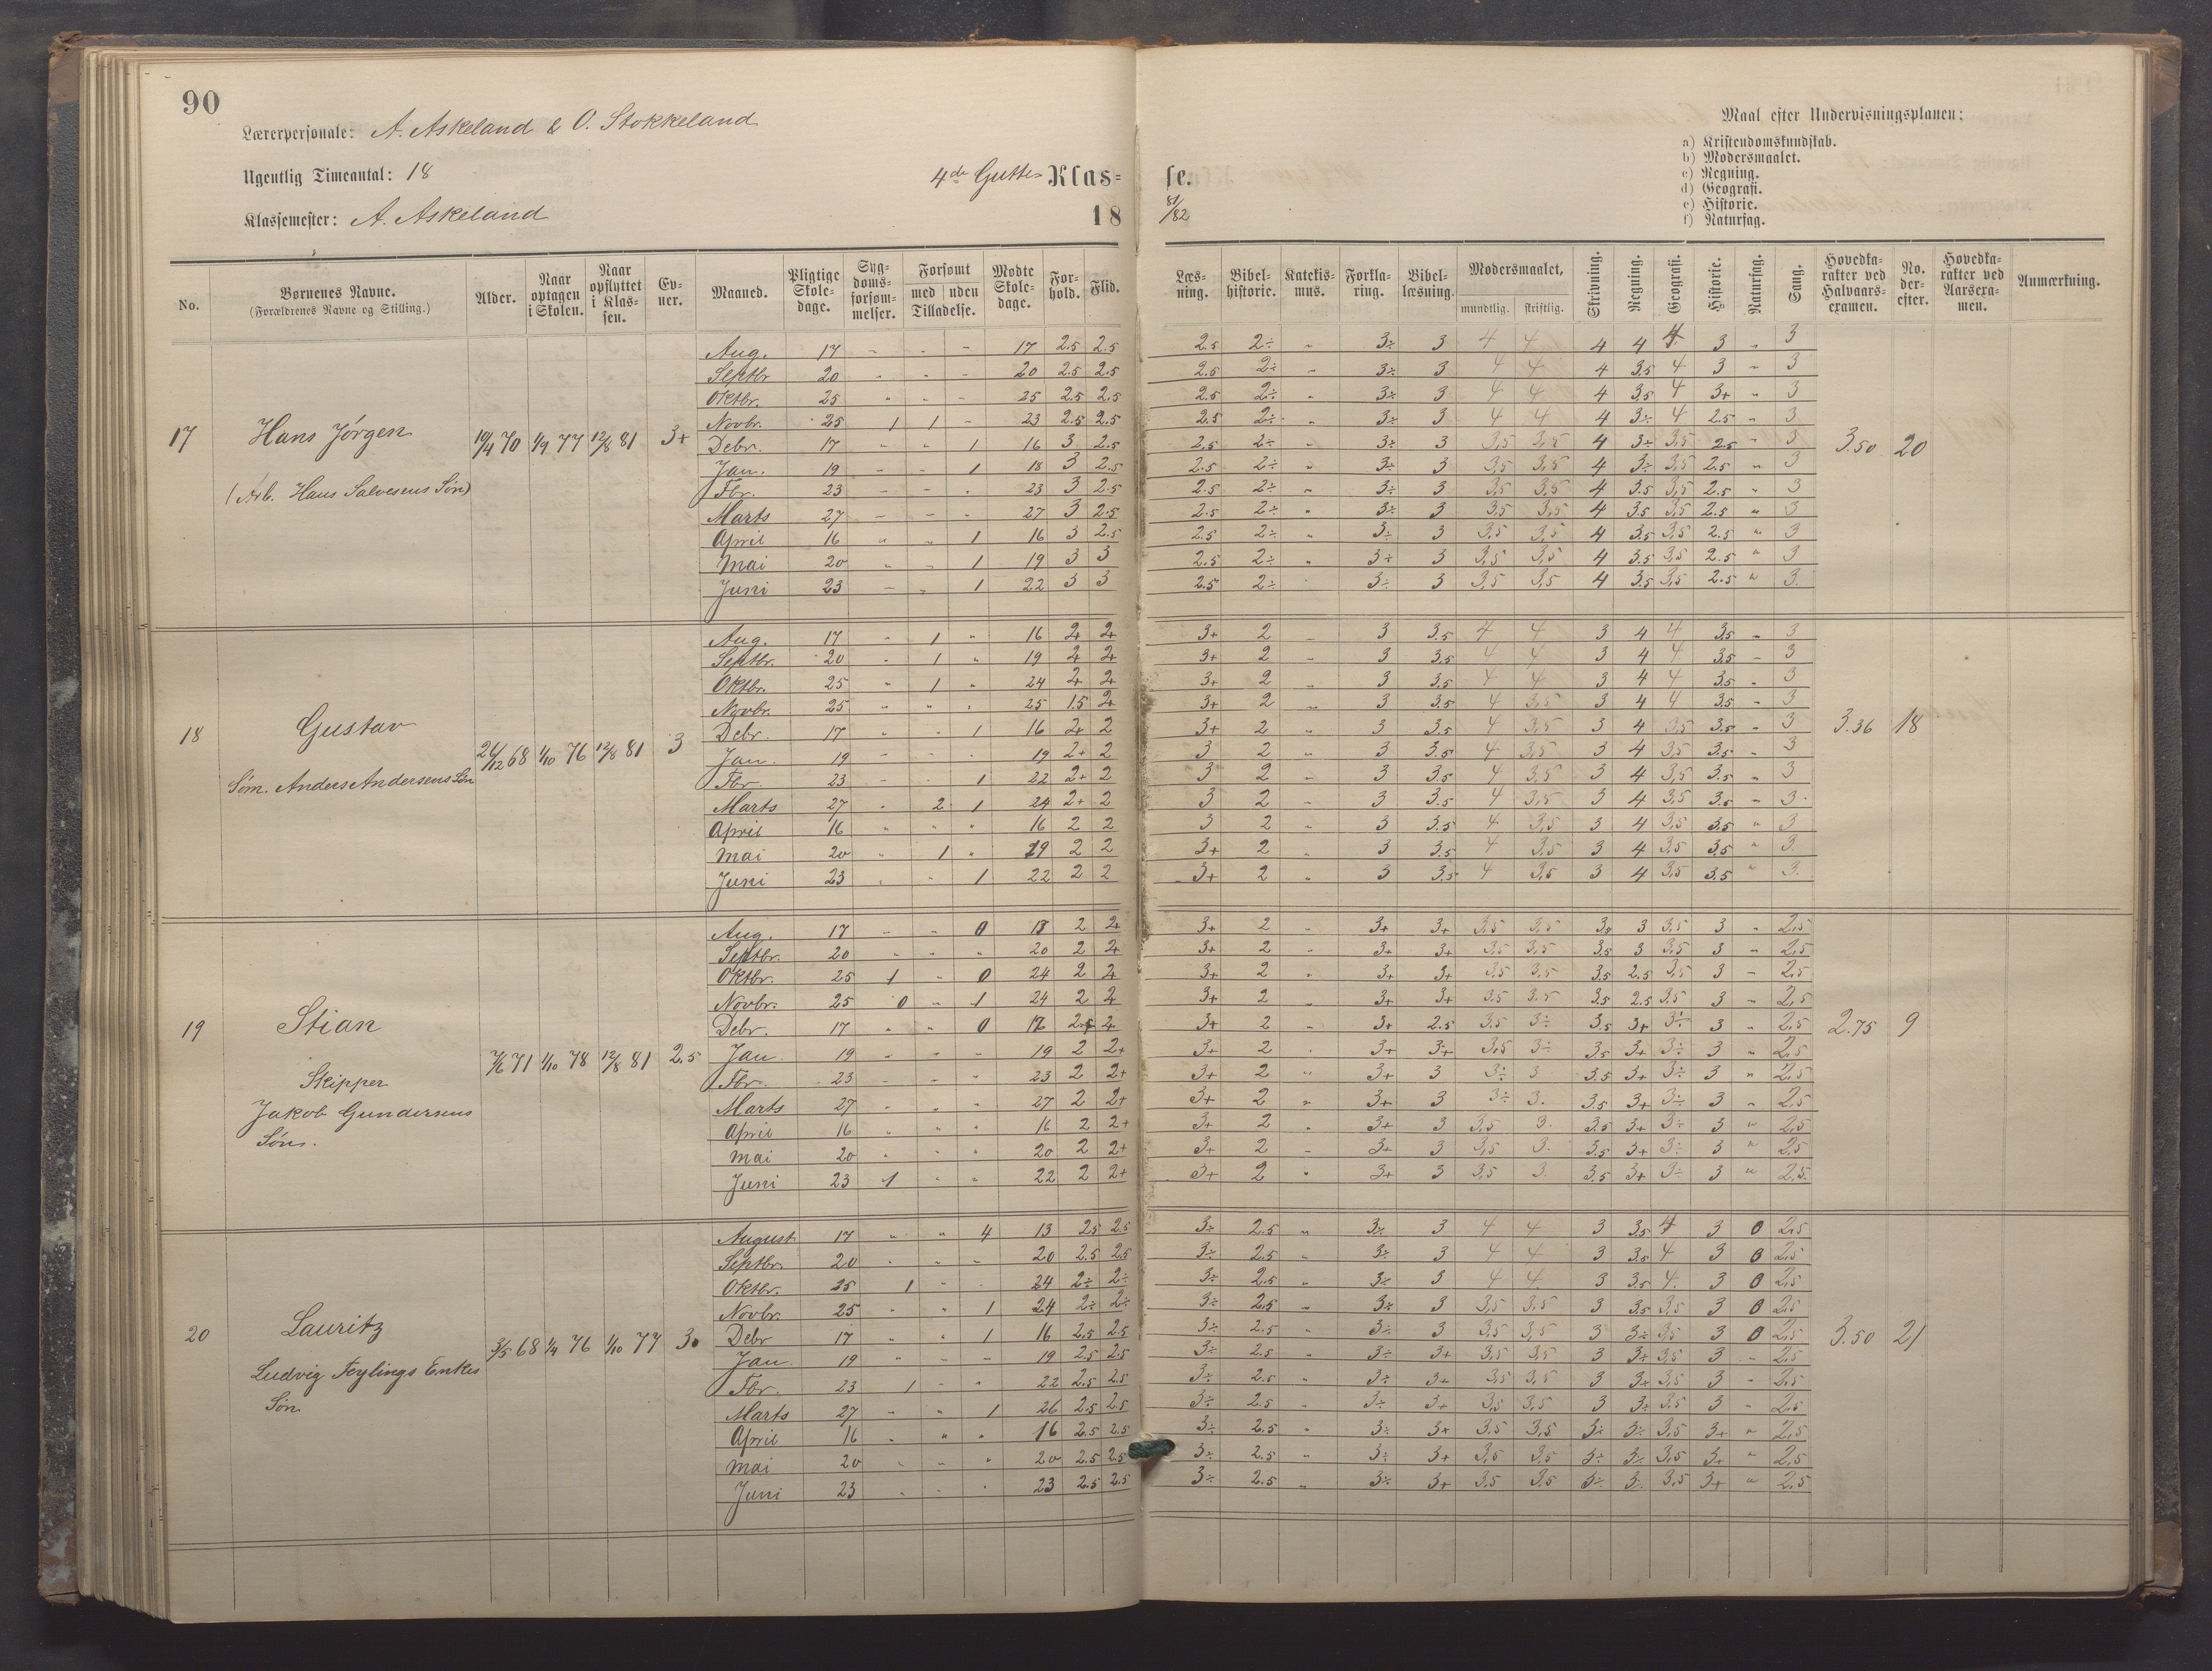 90
Lærerpersonale: A. Askeland & O. Stokkeland
Ugentlig Timeantal: 18
4de Gutte- Klas-
Klassemester: A. Askeland
18
se.
81/82
Maal efter Undervisningsplanen:
a) Kristendomskundskab.
b) Modersmaalet.
c) Regning.
d) Geografi.
e) Historie.
f) Naturfag.
No. Børnenes Navne. (Forældrenes Navne og Stilling.) Alder. Naar optagen i Skolen. Naar opflyttet i Klassen. Evner. Maaned. Pligtige Skoledage. Sygdomsforsømmelser. Forsømt med uden Tilladelse. Mødte Skoledage. Forhold. Flid.
Læsning. Bibelhistorie. Katekismus. Forklaring. Bibellæsning. Modersmaalet, mundtlig. skriftlig. Skrivning. Regning. Geografi. Historie. Naturfag. Sang. Hovedkarakter ved Halvaarsexamen. No. derefter. Hovedkarakter ved Aarsexamen. Anmærkning.
17 Hans Jørgen (Arb. Hans Salvesens Søn) 19/4 70 1/9 77 12/8 81 3+
Aug. 17 " " " 17 2.5 2.5 2.5 2÷ " 3÷ 3 4 4 4 4 4 3 " 3
Septbr. 20 " " " 20 2.5 2.5 2.5 2÷ " 3÷ 3 4 4 4 3.5 4 3 " 3
Oktbr. 25 " " " 25 2.5 2.5 2.5 2÷ " 3÷ 3 4 4 4 3.5 4 3+ " 3
Novbr. 25 1 1 " 23 2.5 2.5 2.5 2÷ " 3÷ 3 4 4 4 3÷ 4 2.5 " 3
Debr. 17 " " 1 16 3 2.5 2.5 2÷ " 3÷ 3 3,5 3,5 4 3÷ 3,5 2.5 " 3
Jan. 19 " " 1 18 3 2.5 2.5 2÷ " 3÷ 3 3,5 3,5 4 3÷ 3,5 2.5 " 3
Fbr. 23 " " " 23 3 2.5 2.5 2÷ " 3÷ 3 3,5 3,5 4 3.5 3,5 2.5 " 3
Marts 27 " " " 27 3 2.5 2.5 2÷ " 3÷ 3 3,5 3,5 4 3.5 3,5 2.5 " 3
April 16 " " 1 16 3 2.5 2.5 2÷ " 3÷ 3 3,5 3,5 4 3.5 3,5 2.5 " 3
Mai 20 " " 1 19 3 3 2.5 2÷ " 3÷ 3 3,5 3,5 4 3.5 3,5 2.5 " 3
Juni 23 " " 1 22 3 3 2.5 2÷ " 3÷ 3 3,5 3,5 4 3.5 3,5 2.5 " 3
3.50 20
18 Gustav Søm. Anders Andersens Søn 24/12 68 1/10 76 12/8 81 3
Aug. 17 " 1 " 16 2 2 3+ 2 " 3 3.5 4 4 3 4 4 3.5 " 3
Septbr. 20 " 1 " 19 2 2 3+ 2 " 3 3.5 4 4 3 4 4 3.5 " 3
Oktbr. 25 " 1 " 24 2 2 3+ 2 " 3 3.5 4 4 3 4 4 3.5 " 3
Novbr. 25 " " " 25 1.5 2 3+ 2 " 3 3.5 4 3,5 3 4 4 3.5 " 3
Debr. 17 " " 1 16 2 2 3+ 2 " 3 3.5 4 3,5 3 4 3,5 3.5 " 3
Jan. 19 " " " 19 2+ 2 3 2 " 3 3.5 4 3,5 3 4 3,5 3.5 " 3
Fbr. 23 " " 1 22 2+ 2 3 2 " 3 3.5 4 3,5 3 4 3,5 3.5 " 3
Marts 27 " 2 1 24 2+ 2 3 2 " 3 3.5 4 3,5 3 4 3,5 3.5 " 3
April 16 " " " 16 2 2 3 2 " 3 3.5 4 3,5 3 4 3,5 3.5 " 3
Mai 20 " 1 " 19 2 2 3+ 2 " 3 3.5 4 3,5 3 4 3,5 3.5 " 3
Juni 23 " " 1 22 2 2 3+ 2 " 3 3.5 4 3,5 3 4 3,5 3.5 " 3
3.36 18
19 Stian Skipper Jakob Gundersens Søn. 7/6 71 1/10 78 12/8 81 2.5
Aug. 17 " " 0 17 2 2 3+ 2 " 3+ 3+ 3,5 3,5 3.5 3 3,5 3 " 2,5
Septbr. 20 " " " 20 2 2 3+ 2 " 3+ 3+ 3,5 3,5 3.5 3 3,5 3 " 2,5
Oktbr. 25 1 " 0 24 2 2 3+ 2 " 3+ 3+ 3,5 3,5 3.5 2.5 3,5 3 " 2,5
Novbr. 25 0 " 1 24 2 2 3+ 2 " 3+ 3+ 3.5 3.5 3.5 2.5 3.5 3 " 2,5
Debr. 17 " " 0 17 2 2 3+ 2 " 3+ 2.5 3.5 3÷ 3.5 3+ 3÷ 3 " 2,5
Jan. 19 " " " 19 2 2+ 3+ 2 " 3+ 3+ 3,5 3÷ 3.5 3+ 3÷ 3 " 2,5
Fbr. 23 " " " 23 2 2+ 3+ 2 " 3+ 3 3÷ 3 3.5 3+ 3÷ 3 " 2,5
Marts 27 " " " 27 2 2+ 3+ 2 " 3+ 3 3÷ 3. 3.5 3+ 3÷ 3 " 2,5
April 16 " " " 16 2 2+ 3+ 2 " 3+ 3 3,5 3. 3.5 3+ 3÷ 3 " 2,5
Mai 20 " " " 20 2 2+ 3+ 2 " 3+ 3 3,5 3. 3.5 3+ 3÷ 3 " 2,5
Juni 23 1 " " 22 2 2+ 3+ 2 " 3+ 3 3,5 3 3.5 3+ 3÷ 3 " 2,5
2.75 9
20 Lauritz Ludvig Feylings Enkes Søn 3/5 68 1/4 76 1/10 77 3
August 17 " " 4 13 2.5 2.5 3÷ 2.5 " 3÷ 3 4 4 3 3.5 4 3 0 2,5
Septbr. 20 " " " 20 2.5 2.5 3÷ 2.5 " 3÷ 3 4 4 3 3.5 4 3 0 2,5
Oktbr. 25 1 " " 24 2÷ 2÷ 3÷ 2.5 " 3÷ 3 4 4 3 3.5 4 3 0 2,5
Novbr. 25 " " 1 24 2÷ 2÷ 3÷ 2.5 " 3÷ 3 3,5 3,5 3 3.5 3,5 3 0 2,5
Debr 17 " " 1 16 2.5 2.5 3÷ 2.5 " 3÷ 3 3,5 3,5 3 3÷ 3,5 3 0 2,5
Jan. 19 " " " 19 2.5 2.5 3÷ 2.5 " 3÷ 3+ 3,5 3,5 3 3÷ 3,5 3 " 2,5
Fbr. 23 1 " " 22 2.5 2.5 3÷ 2.5 " 3÷ 3+ 3,5 3,5 3 3+ 3,5 3 " 2,5
Marts 27 " " 1 26 2.5 2.5 3÷ 2.5 " 3÷ 3+ 3,5 3,5 3 3÷ 3,5 3 " 2,5
April 16 " " " 16 2.5 2.5 3÷ 2.5 " 3÷ 3+ 3,5 3,5 3÷ 3÷ 3,5 3+ " 2,5
Mai 20 " " " 20 2.5 2.5 3÷ 2.5 " 3÷ 3+ 3,5 3,5 3÷ 3÷ 3,5 3+ " 2,5
Juni 23 " " " 23 2.5 2.5 3÷ 2.5 " 3÷ 3+ 3,5 3,5 3÷ 3÷ 3,5 3+ " 2,5
3.50 21